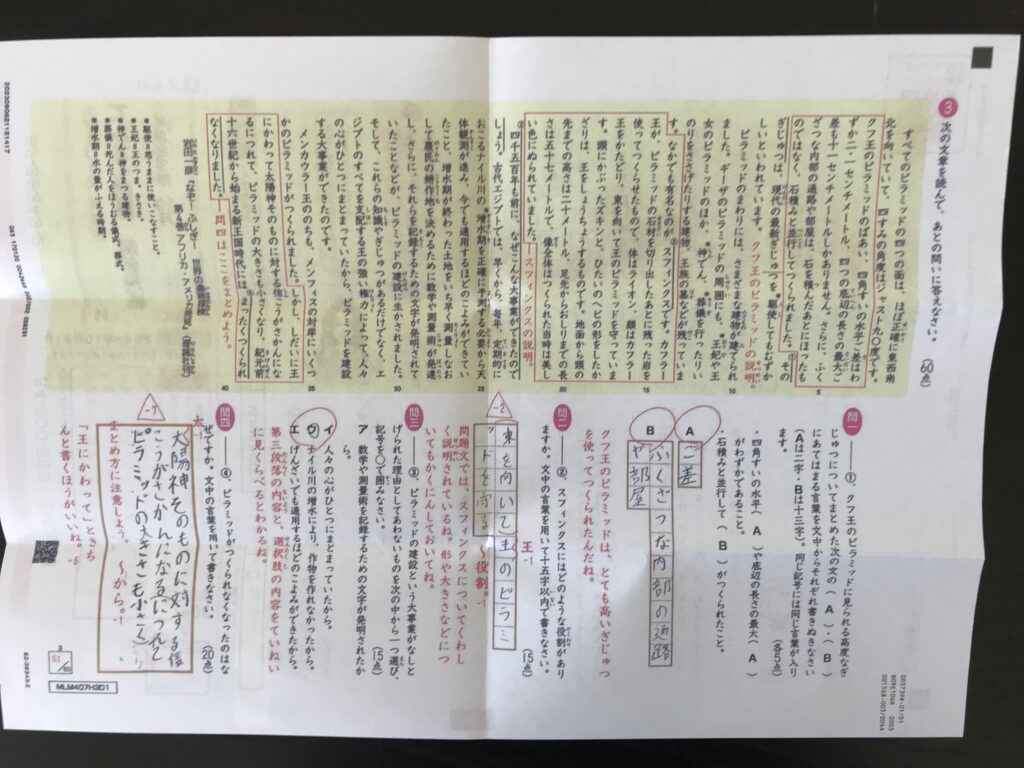 3 次の文章を読んで、あとの問いに答えなさい。(60点)
すべてのピラミッドの四つの面は、ほぼ正確に東西南
北を向いていて、四すみの角度はジャスト九〇度です。
クフ王のピラミッドのばあい、四角すいの水平ご差はわ
ずか二・一センチメートル、四つの底辺の長さの最大ご
差も十一センチメートルしかありません。さらに、ふく
ざつな内部の通路や部屋は、石を積んだあとにほったも
のではなく、石積みと並行してつくられました。①その
ぎじゅつは、現代の最新ぎじゅつを*駆使してもむずか
しいといわれています。クフ王のピラミッドの説明。
ピラミッドのまわりには、さまざまな建物が建てられ
ました。ギーザのピラミッドの周囲にも、*王妃や王
女のピラミッドのほか、*神でん、*葬儀を行ったりい
のりをささげたりする建物、王族の墓などが残っていま
す。なかでも有名なのが、②スフィンクスです。カフラー
王が、ピラミッドの石材を切り出したあとに残った岩を
使ってつくらせたもので、体はライオン、顔はカフラー
王をかたどり、東を向いて王のピラミッドを守っていま
す。頭にかぶったズキンと、ひたいのヘビの形をしたか
ざりは、王をしょうちょうするものです。地面から頭の
先までの高さは二十メートル、足先からおしりまでの長
さは五十七メートルで、像全体はつくられた当時は美し
い色にぬられていました。スフィンクスの説明。
四千五百年も前に、なぜこんな大事業ができたので
しょう。古代エジプトでは、早くから、毎年、定期的に
おこるナイル川の*増水期を正確に予測する必要から天
体観測が進み、今でも通用するほどのこよみができてい
たこと、増水期が終わった土地をいち早く測量しなお
して農民の耕作地を決めるために数学や測量術が発達
し、さらに、それらを記録するための文字が発明されて
いたことなどが、ピラミッドの建設に生かされました。
そして、これらの知識やぎじゅつがあるだけでなく、エ
ジプトのすべてを支配する王の強い権力によって、人々
の心がひとつにまとまっていたから、ピラミッドを建設
する大事業ができたのです。
メンカウラー王ののちも、メンフィスの対岸にいくつ
かのピラミッドがつくられました。しかし、しだいに王
にかわって太陽神そのものに対する信こうがさかんにな
るにつれて、ピラミッドの大きさも小さくなり、紀元前
十六世紀から始まる新王国時代には、④まったくつくられ
なくなりました。問四はここをまとめよう。
*駆使=思うままに使いこなすこと。
*王妃=王のつま。きさき。
*神でん=神をまつる建物。
*葬儀=死んだ人をほうむる儀式。葬式。
*増水期=水の量がふえる時期。
問一 ――①、クフ王のピラミッドに見られる高度なぎ
じゅつについてまとめた次の文の(A)・(B)
にあてはまる言葉を文中からそれぞれ書きぬきなさい
(Aは二字・Bは十三字)。同じ記号には同じ言葉が入り
ます。(各5点)
・四角すいの水平(A)や底辺の長さの最大(A)
がわずかであること。
・石積みと並行して(B)がつくられたこと。
A ご差
B ふくざつな内部の通路
や部屋
クフ王のピラミッドは、とても高いぎじゅつ
を使ってつくられたんだね。
問二 ――②、スフィンクスにはどのような役割があり
ますか。文中の言葉を用いて十五字以内で書きなさい。
(15点)
-2
東を向いて王のピラミ
ッドを守る
王-1
〜役割。-1
問題文では、スフィンクスについてくわし
く説明されているね。形や大きさなどにつ
いてもかくにんしておいてね。
問三 ――③、ピラミッドの建設という大事業がなしと
げられた理由としてあわないものを次の中から一つ選び、
記号を〇で囲みなさい。(15点)
ア 数学や測量術を記録するための文字が発明されたか
ら。
イ 人々の心がひとつにまとまっていたから。
ウ ナイル川の増水により、作物を作れなかったから。
エ げんざいでも通用するほどのこよみができたから。
第三段落の内容と、選択肢の内容をていねい
に見くらべるとわかるね。
問四 ――④、ピラミッドがつくられなくなったのはな
ぜですか。文中の言葉を用いて書きなさい。(20点)
-7
太-1
太陽神そのものに対する信
こうがさかんになるにつれて
ピラミッドの大きさも小さくなり
〜から。-1
まとめ方に注意しよう。
「王にかわって」ときち
んと書くほうがいいね。-5
3
51/60
MLM407H3D1